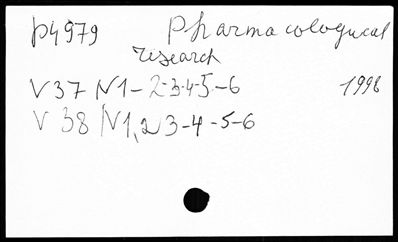 P4979 Pharmacological
research
V37 N1-2-3-4-5-6 1998
V 38 N1,2 3-4-5-6